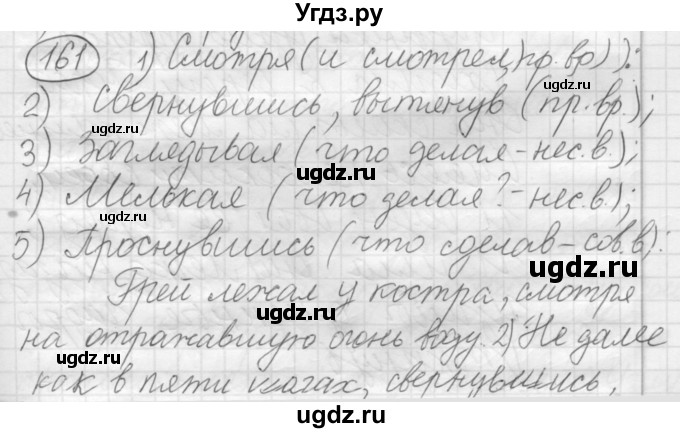 Угдз.ру
161 1) Смотря (и смотрел, пр.вр)):
2) Свернувшись, вытянув (пр.вр.);
3) Заглядывая (что делая - нес.в.);
4) Мелькая (что делая? - нес.в.);
5) Проснувшись (что сделав - сов.в):
Грей лежал у костра, смотря
на отражавшую огонь воду. 2) Не далее
как в пяти шагах, свернувшись,
ugdz.ru
ugdz.ru
ugdz.ru
ugdz.ru
ugdz.ru
ugdz.ru
ugdz.ru
ugdz.ru
ugdz.ru